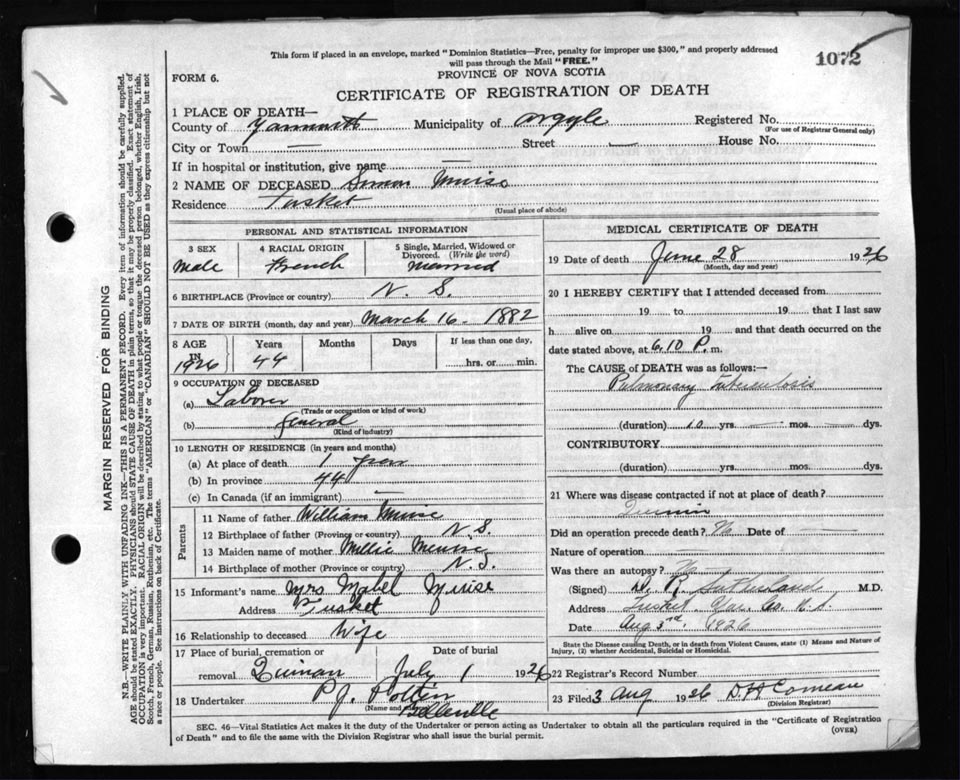 This form if placed in an envelope, marked "Dominion Statistics—Free, penalty for improper use $300," and properly addressed
will pass through the Mail "FREE."
1072
FORM 6.
PROVINCE OF NOVA SCOTIA
CERTIFICATE OF REGISTRATION OF DEATH
1 PLACE OF DEATH—
County of Yarmouth Municipality of Argyle Registered No.
(For use of Registrar General only)
City or Town — Street — House No.
If in hospital or institution, give name —
2 NAME OF DECEASED Simon Muise
Residence Tusket
(Usual place of abode)
PERSONAL AND STATISTICAL INFORMATION
3 SEX 4 RACIAL ORIGIN 5 Single, Married, Widowed or
Divorced. (Write the word)
Male French Married
6 BIRTHPLACE (Province or country) N. S.
7 DATE OF BIRTH (month, day and year) March 16. 1882
8 AGE Years Months Days If less than one day,
in 1926 44 hrs. or min.
9 OCCUPATION OF DECEASED
(a) Laborer
(Trade or occupation or kind of work)
(b) General
(Kind of industry)
10 LENGTH OF RESIDENCE (in years and months)
(a) At place of death 1 year
(b) In province 44
(c) In Canada (if an immigrant) —
Parents
11 Name of father William Muise
12 Birthplace of father (Province or country) N. S.
13 Maiden name of mother Millie Meuise
14 Birthplace of mother (Province or country) N. S.
15 Informant's name Mrs Mabel Muise
Address Tusket
16 Relationship to deceased Wife
17 Place of burial, cremation or Date of burial
removal Quinan July 1 1926
18 Undertaker P. J. Pottier
(Name and address) Belleville
MEDICAL CERTIFICATE OF DEATH
19 Date of death June 28 1926
(Month, day and year)
20 I HEREBY CERTIFY that I attended deceased from
19 to 19 that I last saw
h alive on 19 and that death occurred on the
date stated above, at 6.10 P. m.
The CAUSE of DEATH was as follows:—
Pulmonary tuberculosis
(duration) 10 yrs. — mos. — dys.
CONTRIBUTORY
(duration) yrs. mos. dys.
21 Where was disease contracted if not at place of death?
Quinan
Did an operation precede death? No Date of —
Nature of operation —
Was there an autopsy? No
(Signed) Sutherland M.D.
Address Tusket, Yar. Co. N.S.
Date Aug 3rd. 1926
State the Disease causing Death, or in death from Violent Causes, state (1) Means and Nature of
Injury, (2) whether Accidental, Suicidal or Homicidal.
22 Registrar's Record Number
23 Filed 3 Aug 1926 D H Comeau
(Division Registrar)
SEC. 46—Vital Statistics Act makes it the duty of the Undertaker or person acting as Undertaker to obtain all the particulars required in the "Certificate of Registration
of Death" and to file the same with the Division Registrar who shall issue the burial permit.
(OVER)
MARGIN RESERVED FOR BINDING
N.B.—WRITE PLAINLY WITH UNFADING INK—THIS IS A PERMANENT RECORD. Every item of information should be carefully supplied.
AGE should be stated EXACTLY. PHYSICIANS should STATE CAUSE OF DEATH in plain terms, so that it may be properly classified. Exact statement of
OCCUPATION is very important. RACIAL ORIGIN will be described by stating to what people or tongue the deceased person belonged, whether English, Irish,
Scotch, French, German, Russian, Ruthenian, etc. The terms "AMERICAN" or "CANADIAN" SHOULD NOT BE USED as they express citizenship but not
a race or people. See instructions on back of Certificate.